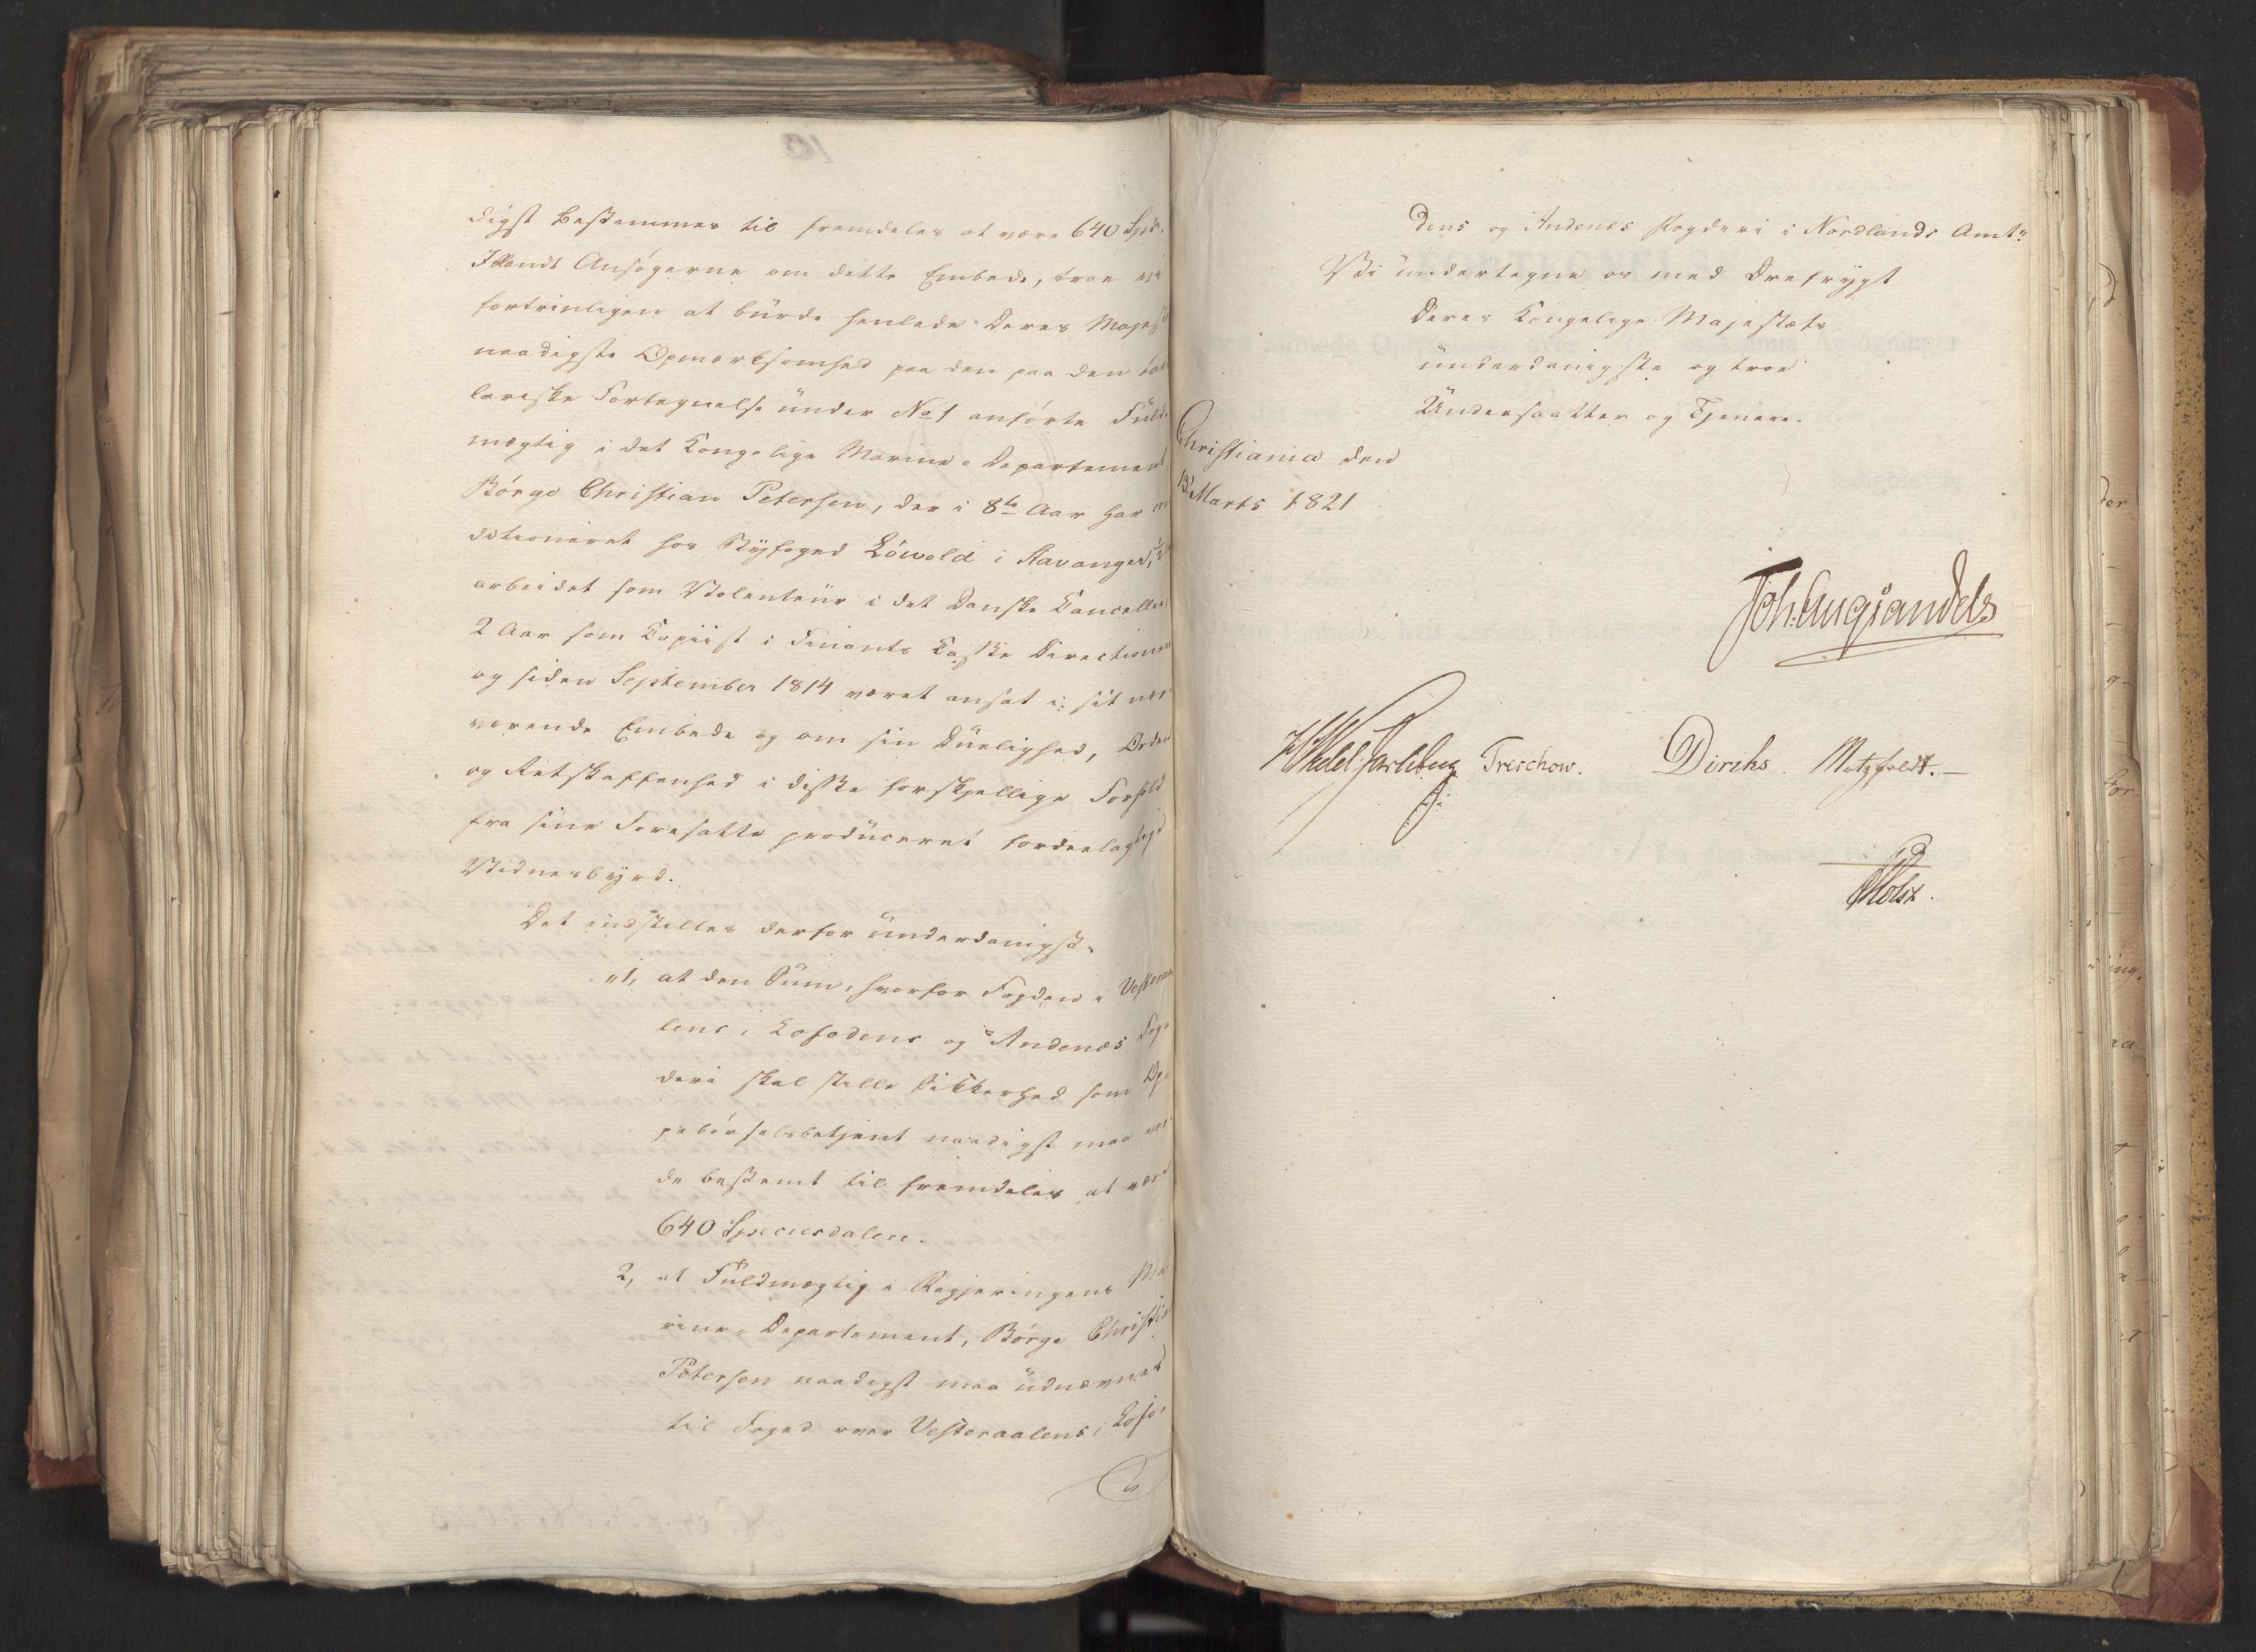 digst bestemmes til fremdeles at være 640 Spd.
Iblandt Ansøgerne om dette Embede, troe vi
fortrinligen at burde henlede Deres Majest
naadigste Opmærksomhed paa den paa den tab
lariske Fortegnelse under No 1 anførte Fuld-
mægtig i det Kongelige Marine-Departement
Børge Christian Petersen, der i 8te Aar har con
ditioneret hos Byfoged Löwold i Stavanger,
arbeidet som Volenteur i det danske Cancellie
2 Aar som Copiist i Finants Casse Directionen
og siden September 1814 været ansat i sit nær-
værende Embede og om sin Duelighed, Orden
og Retskaffenhed i disse forskjellige Forhold
fra sine Foresatte produceret fordeelagtige
Vidnesbyrd.
Det indstilles derfor underdanigst:
"1, at den Sum, hvorfor Fogden i Vesteraa
lens, Lofodens og Andenes Fog-
deri skal stille Sikkerhed som Op-
pebørselsbetjent naadigst maa vor-
de bestemt til fremdeles at være
640 Speciesdalere.
2, at Fuldmægtig i Regjeringens Ma
rine-Departement, Børge Christia
Petersen naadigst maa udnævnes
til Foged over Vesteraalens, Lofo-
dens og Andenes Fogderi i Nordlands Amt"
Vi undertegne os med Ærefrygt
Deres Kongelige Majestæts
underdanigste og troe
Undersaatter og Tjenere.
Christiania den
13' Marts 1821
Joh: Aug: Sandels
HWedel Jarlsberg Treschow. Diriks. Motzfeldt.
Holst.